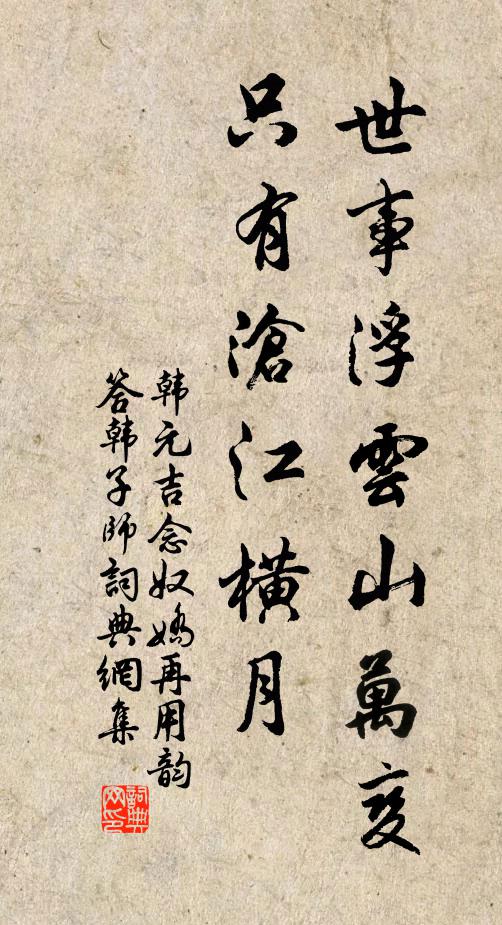 世事浮雲山萬变
只有滄江橫月
韩元吉念奴嬌再用韵
答韩子師詞典網集
詞典
网印